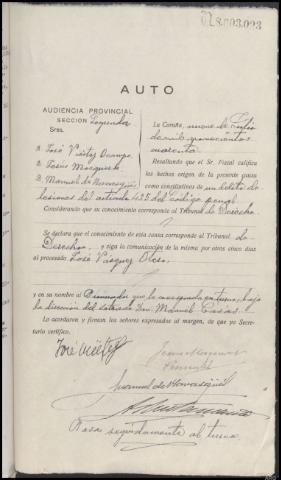 8.003.093
AUTO
AUDIENCIA PROVINCIAL
SECCION Segunda
Sres.
D. José Viéitez Ocampo
D. Jesús Marquina
D. Manuel de
La Coruña, nueve de Julio
de mil novecientos
cuarenta
Resultando que el Sr. Fiscal califica
los hechos origen de la presente causa
como constitutivos de un delito de
lesiones del artículo 435 del código penal
Considerando que su conocimiento corresponde al Tribunal de Derecho.
Se declara que el conocimiento de esta causa corresponde al Tribunal de
Derecho, y siga la comunicación de la misma por otros cinco días
al procesado José Vázquez
y en su nombre al Procurador que le corresponda en turno, bajo
la dirección del Letrado Don Manuel Casas.
Lo acordaron y firman los señores expresados al margen, de que yo Secre-
tario certifico.
José Viéitez
Manuel de
Pasa seguidamente al turno.